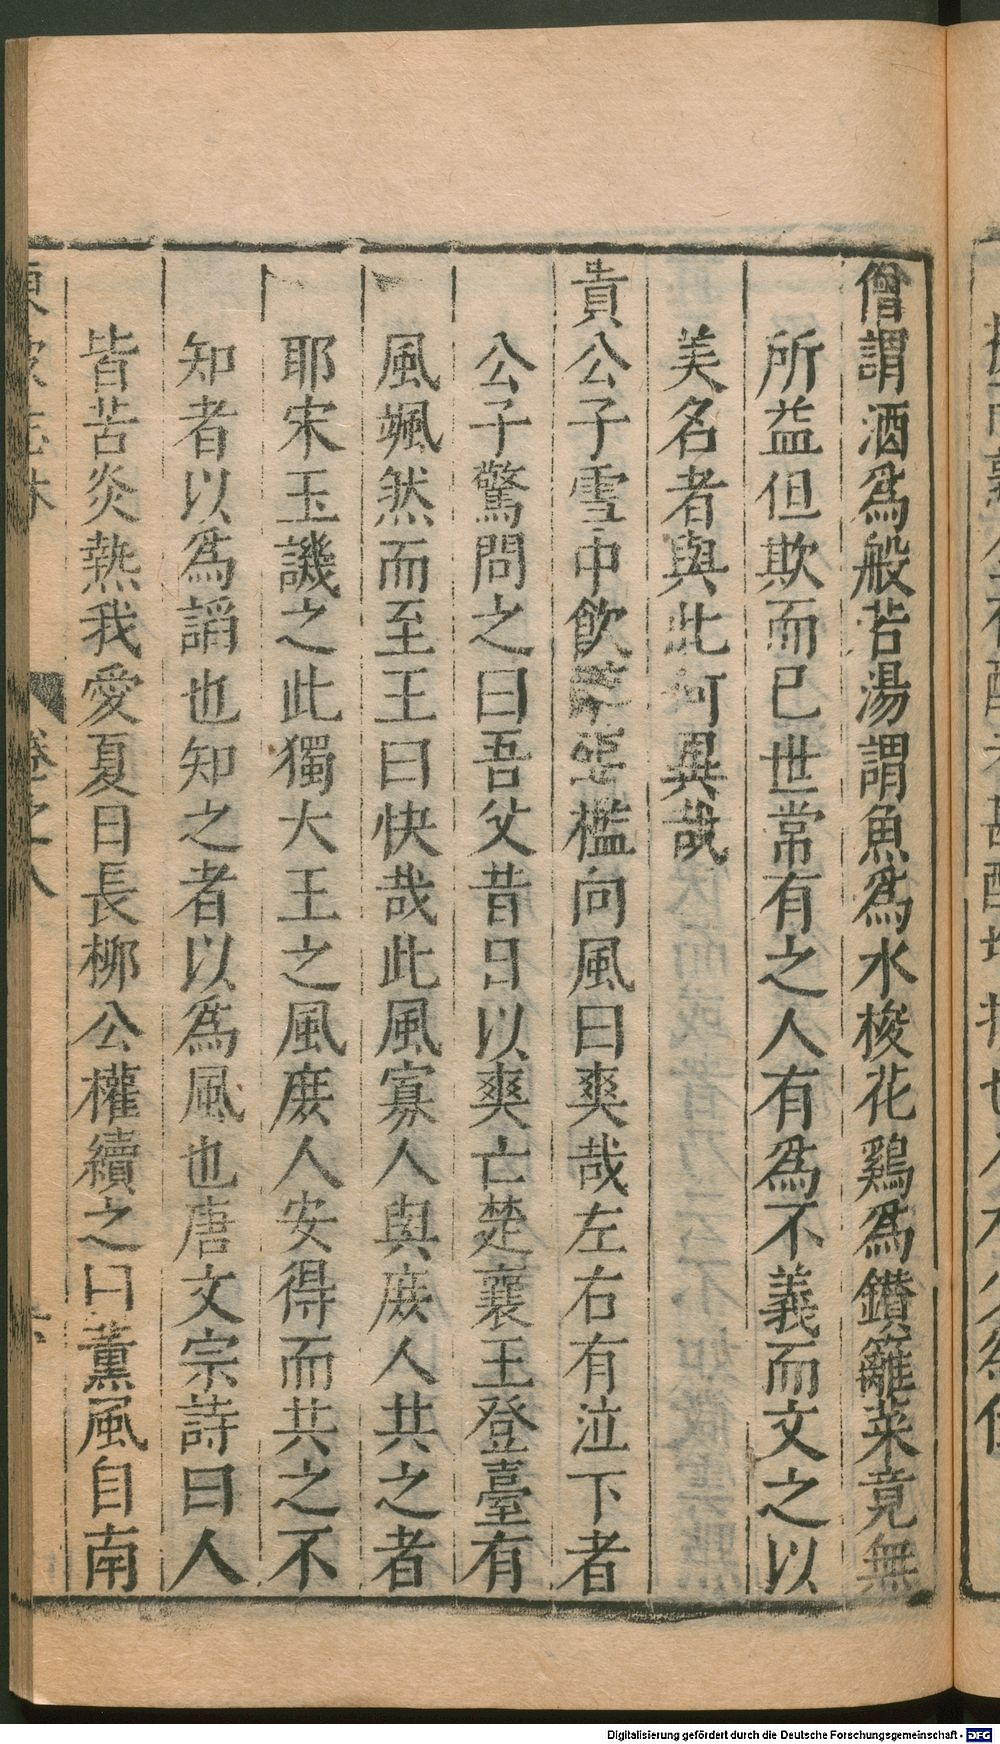 僧謂酒爲般若湯謂魚爲水梭花鷄爲鑚籬菜竟無
所益但欺而已世常有之人有爲不義而文之以
美名者與此何異哉
貴公子雪中飲臨檻向風曰爽哉左右有泣下者
公子驚問之曰吾父昔日以爽亡楚襄王登臺有
風颯然而至王曰快哉此風寡人與庶人共之者
耶宋玉譏之此獨大王之風庶人安得而共之不
知者以爲謟也知之者以爲風也唐文宗詩曰人
皆苦炎熱我愛夏日長柳公權續之曰薰風自南
卷之八
Digitalisierung gefördert durch die Deutsche Forschungsgemeinschaft - DFG